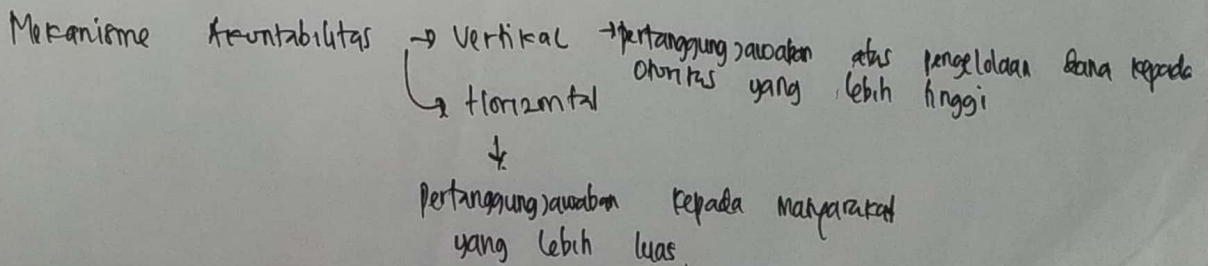 Mekanisme Akuntabilitas → Vertikal → pertanggungjawaban atas pengelolaan dana kepada
otoritas yang lebih tinggi
↳ Horizontal
↓
Pertanggungjawaban kepada masyarakat
yang lebih luas.